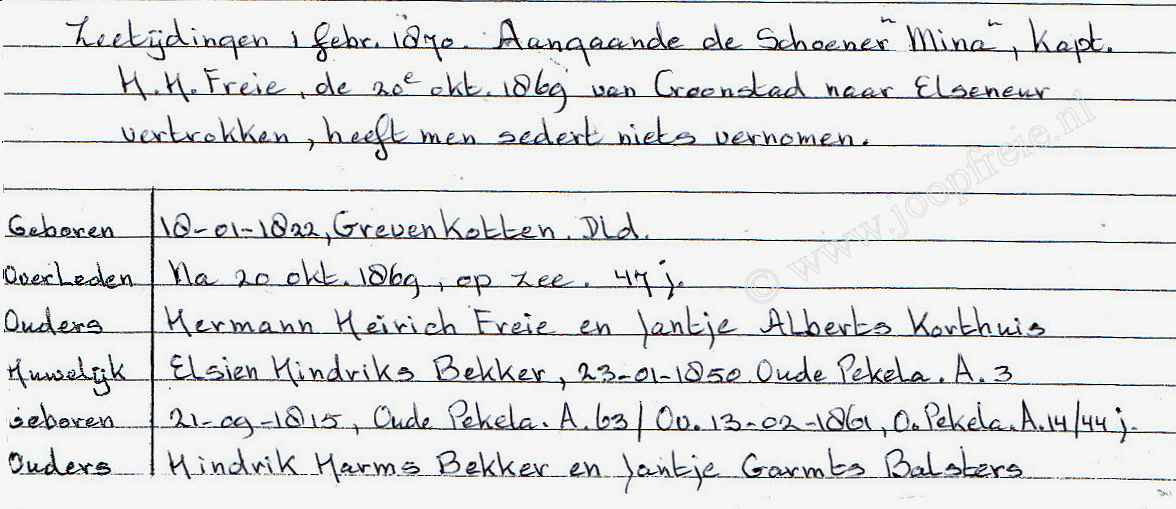 Zeetijdingen 1 febr. 1870. Aangaande de Schoener "Mina", Kapt.
H.H. Freie, de 20e okt. 1869 van Croonstad naar Elseneur
vertrokken, heeft men sedert niets vernomen.
© www.joopfreie.nl
Geboren 18-01-1822, Grevenkotten. Dld.
Overleden Na 20 okt. 1869, op zee. 47 j.
Ouders Hermann Heirich Freie en Jantje Alberts Korthuis
Huwelijk Elsien Hindriks Bekker, 23-01-1850 Oude Pekela. A. 3
Geboren 21-09-1815, Oude Pekela. A. 63 / Ov. 13-02-1861, O. Pekela. A. 14 / 44 j.
Ouders Hindrik Harms Bekker en Jantje Garmts Balsters